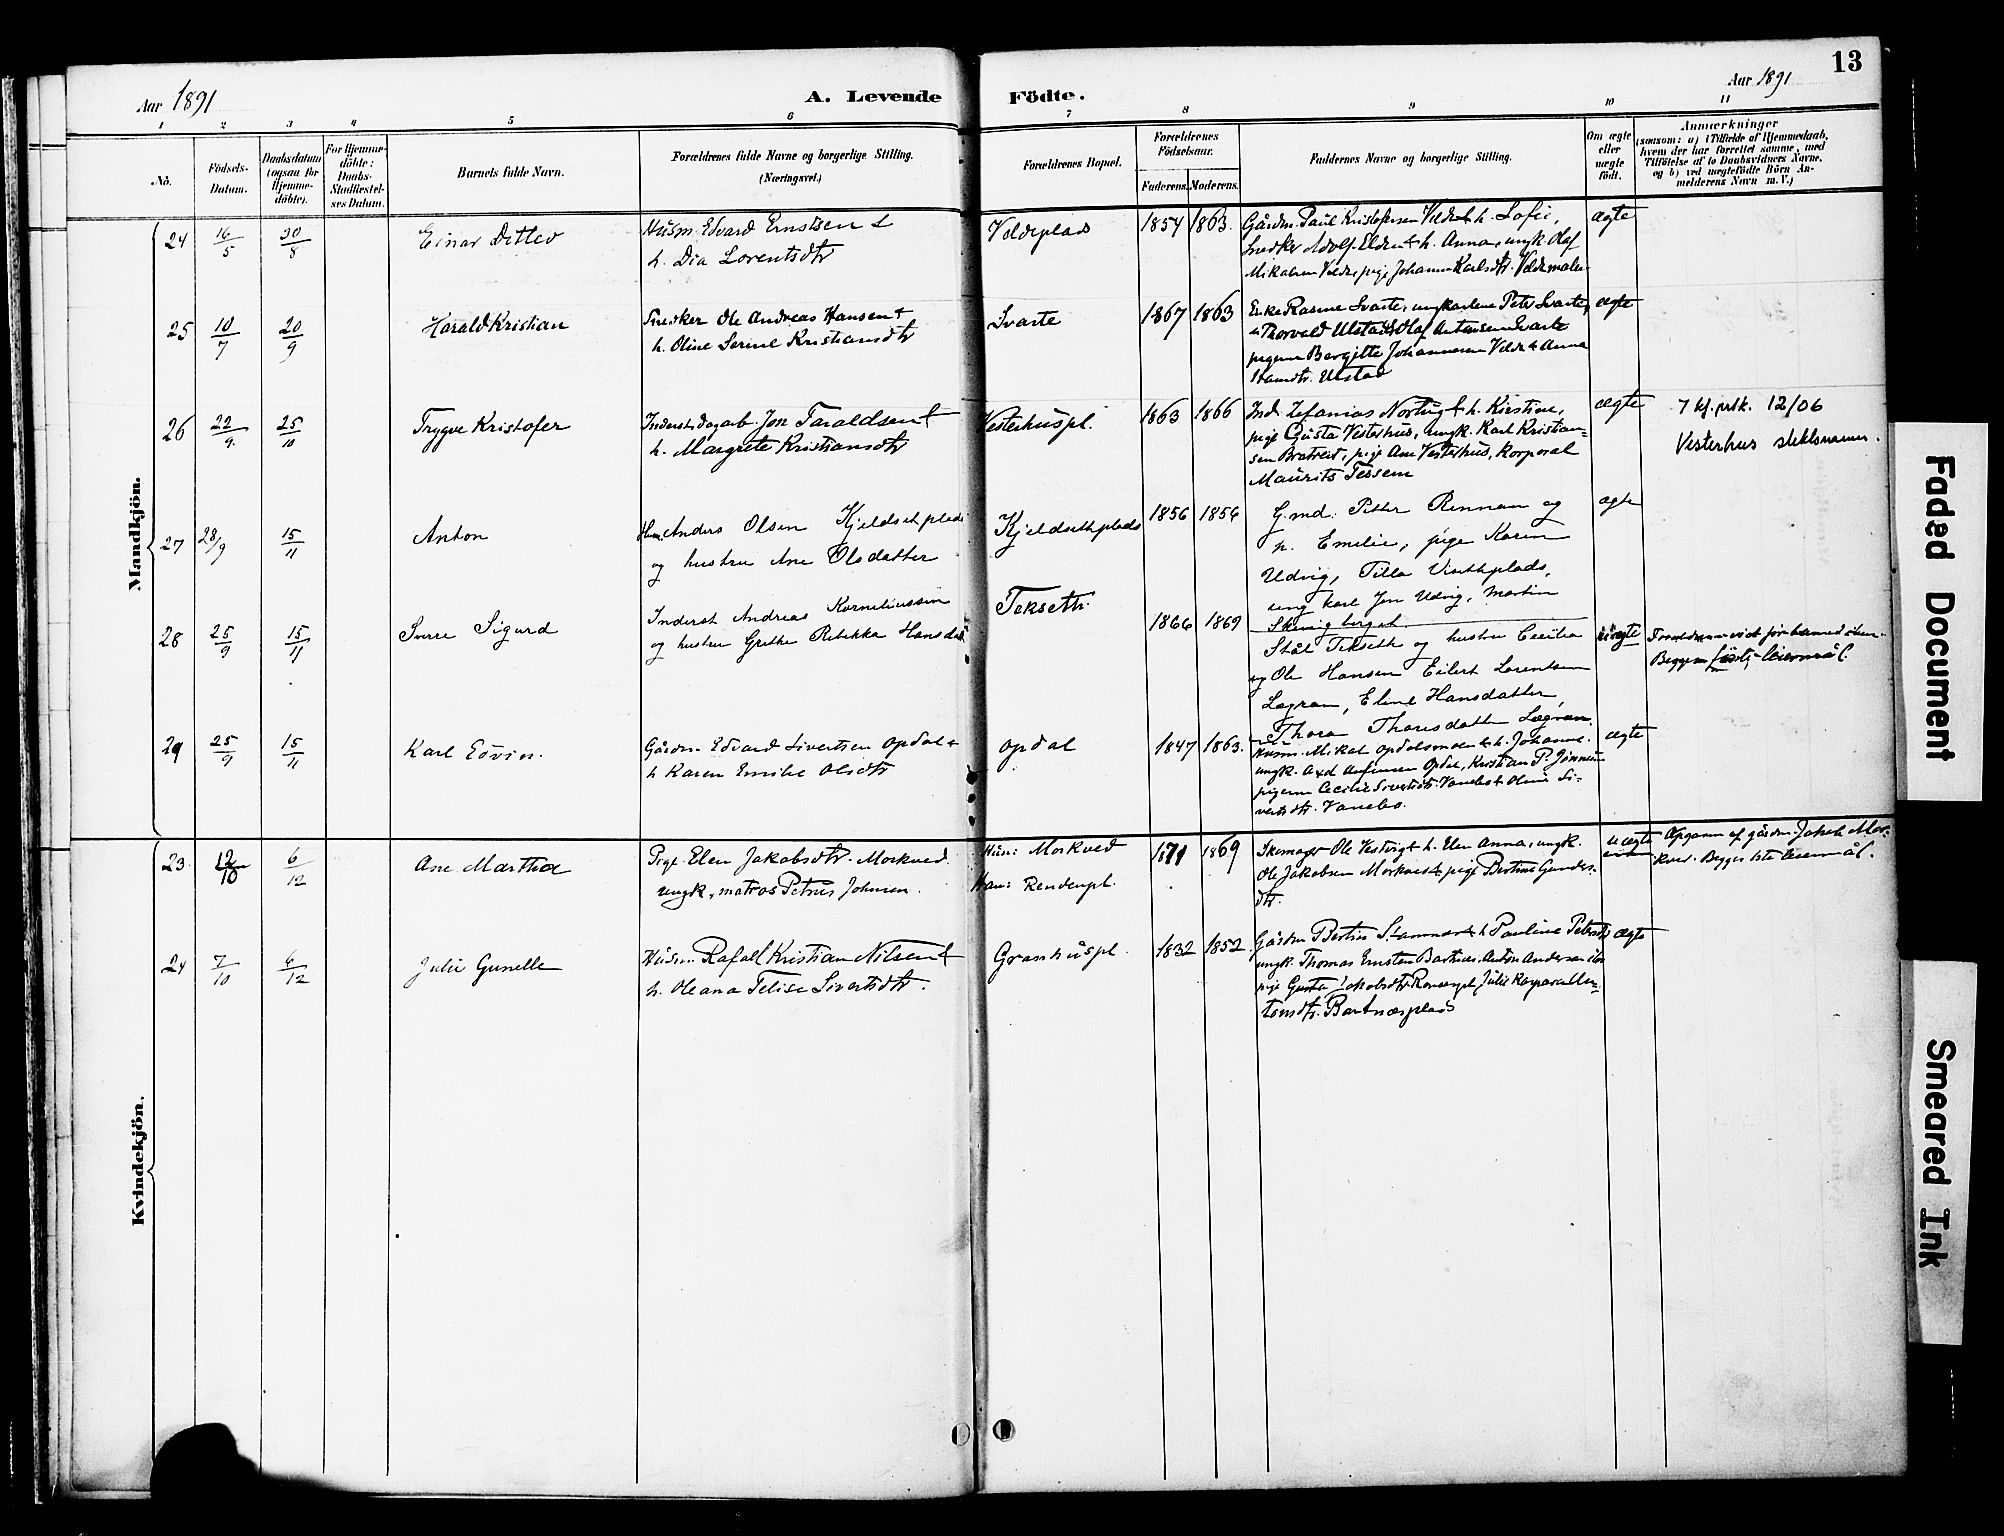 13
Aar 1891
A. Levende Födte.
Aar 1891
1 2 3 4 5 6 7 8 9 10 11
No.
Födsels-
Datum.
Daabsdatum
(ogsaa for
Hjemme-
döbte).
For Hjemme-
döbte:
Daabs-
Stadfæstel-
ses Datum.
Barnets fulde Navn.
Forældrenes fulde Navne og borgerlige Stilling.
(Næringsvei.)
Forældrenes Bopæl.
Forældrenes
Födselsaar.
Faderens. Moderens.
Faddernes Navne og borgerlige Stilling.
Om ægte
eller
uægte
födt.
Anmærkninger
(saasom: a) i Tilfælde af Hjemmedaab,
hvem der har forrettet samme, med
Tilföielse af to Daabsvidners Navne,
og b) ved uægtefödte Börn An-
melderens Navn m. V.)
Mandkjön.
24 16/5 30/8 Einar Ditlev
Husm. Edvard Ernstsen &
h. Dia Lorentsdtr
Veldeplads 1854 1863.
Gårdm. Paul Kristofersen Velde & h. Sofie,
Snedker Adolf Elden & h. Anna, ungk. Olaf
Mikalsen Velde, pige Johanna Karlsdtr. Veldemalen
ægte
25 10/7 20/9 Harald Kristian
Snedker Ole Andreas Hansen &
h. Oline Serine Kristiansdtr
Svarte 1867 1863
Enke Rasine Svarte, ungkarlene Peter Svarte,
Thorvald Ulstad & Olaf Antonsen Svarte
pigerne Bergitte Johannesen Velde & Anna
Hansdtr. Ulstad
ægte
26 22/9 25/10 Trygve Kristofer
Inderst, dagarb. Jon Taraldsen &
h. Margrete Kristiansdtr
Vesterhuspl. 1863 1866
Ind. Zefanias Nortug & h. Kirstine,
pige Gusta Vesterhus, ungk. Karl Kristian-
sen Bratreit, pige Ane Vesterhus, Korporal
Maurits Tessem
ægte
7 kj. mk. 12/06
Vesterhus slektsnavn.
27 28/9 15/11 Anton
Hm. Anders Olsen Kjeldsetplads
og hustru Ane Olsdatter
Kjeldsethplads 1856 1856
G.md. Petter Rennan og
h. Emilie, pige Karen
Udvig, Tilla Vinthplads,
ung karl Jon Udvig, Martin
Skavigberget
ægte
28 25/9 15/11 Sverre Sigurd
Inderst Andreas Korneliussen
og hustru Grethe Rebekka Hansdat
Teksetr. 1866 1869
Ståle Tekseth og hustru Cecilia
og Ole Hansen Eilert Lorentsen
Lægran, Eline Hansdatter,
Thora Thoresdatter Lægran.
uægte
Forældrene viet før barnedåben.
Begges første leiermål.
29 25/9 15/11 Karl Edvin.
Gårdm. Edvard Sivertsen Opdal &
h. Karen Emilie Olsdtr
Opdal 1847 1863.
Husm. Mikal Opdalsmoen & h. Johanna.
ungk. Axd Anfinsen Opdal, Kristian P. Jönnum
pigerne Cecilie Sivertsdtr. Vanebo & Oline Si-
vertsdtr. Vanebo.
ægte
Kvindekjön.
23 12/10 6/12 Ane Martha
Pige Elen Jakobsdtr. Morkved.
ungk., matros Petrus Johnsen.
Hun: Morkved
Han: Rendenpl.
1871 1869
Skomager Ole Vestvig & h. Elen Anna, ungk.
Ole Jakobsen Morkved & pige Bertine Gunders-
dtr.
uægte
Opgaven af gårdm. Jakob Mor-
kved. Begges 1ste leiermål.
24 7/10 6/12 Julie Gunelle
Husm. Rafael Kristian Nilsen &
h. Oleana Felise Sivertsdtr.
Granhuspl. 1832 1852.
Gårdm Bertin Stamnes & h Pauline Petersdtr
ungk. Thomas Ernsten Bartnes, Anton Andersen ibm
pige Gusta Jakobsdtr. , Julie Kasparadan-
tonsdtr. Bartnesplads
ægte
Faded Document
Smeared Ink